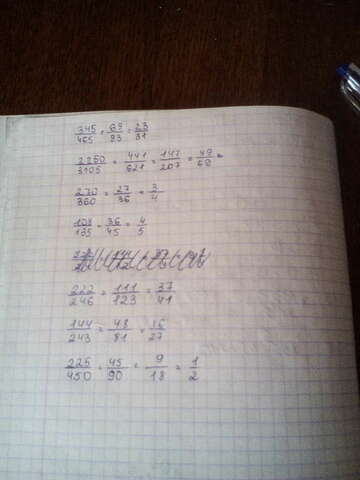 345/465 = 69/93 = 23/31
2250/3105 = 441/621 = 147/207 = 49/69
270/360 = 27/36 = 3/4
108/135 = 36/45 = 4/5
222/246 = 111/123 = 37/41
144/243 = 48/81 = 16/27
225/450 = 45/90 = 9/18 = 1/2